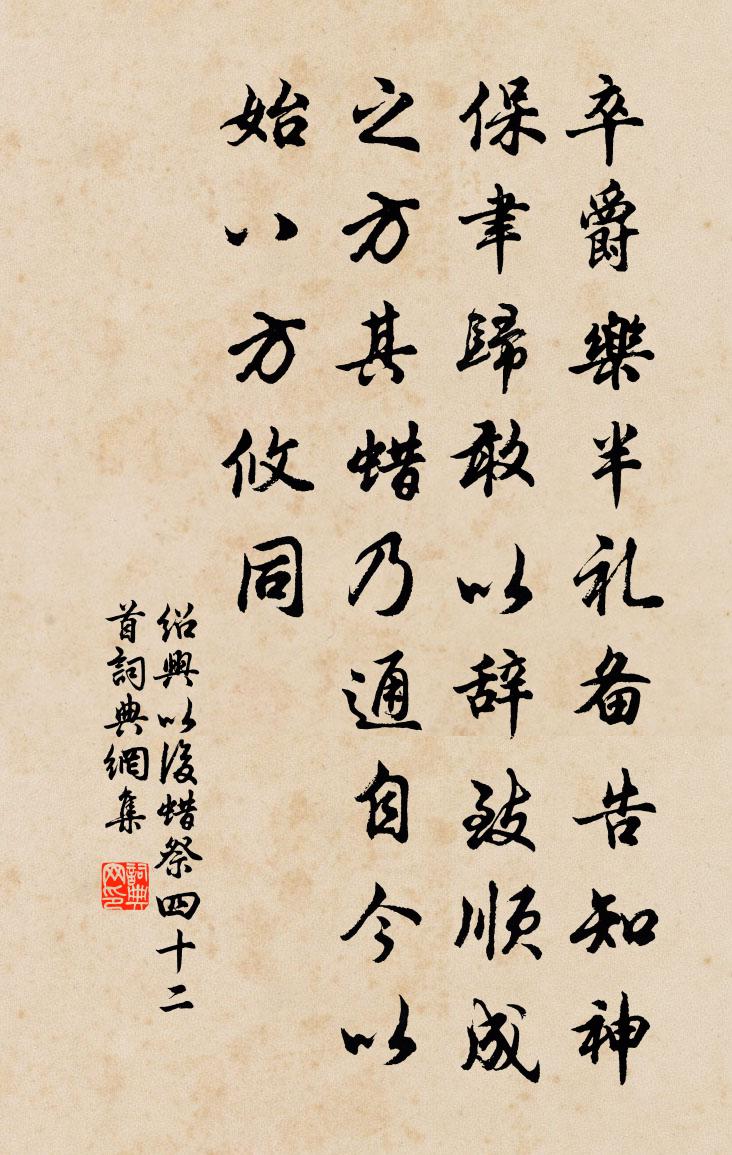 卒爵樂半礼备告知神
保聿歸敢以辞致順成
之方其蜡乃通自今以
始八方攸同
紹興以後蜡祭四十二
首詞典網集
詞典
网印